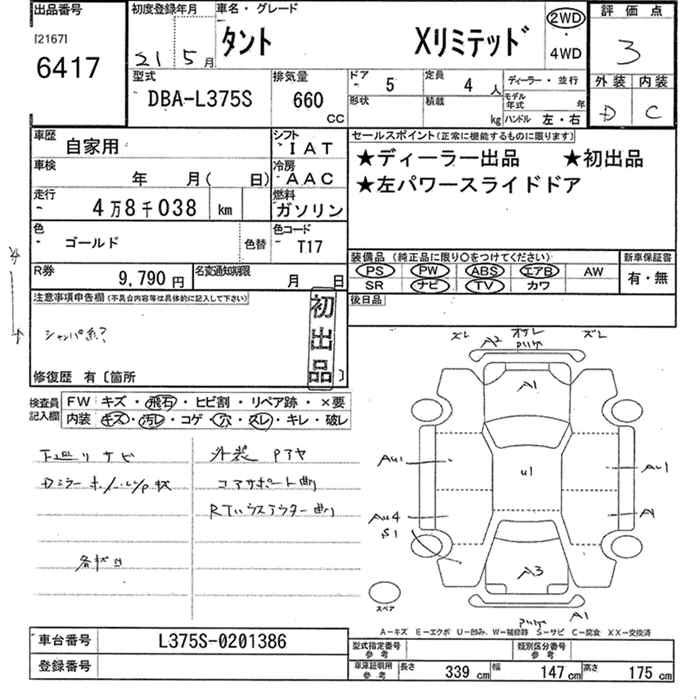 出品番号 初度登録年月 車名・グレード 評価点
[2167] 6417 21 5月 タント Xリミテッド 2WD・4WD 3
型式 排気量 ドア 5 定員 4人 ディーラー・並行 外装 内装
DBA-L375S 660 CC 形状 積載 kg モデル年式 年 ハンドル 左・右 D C
車歴 自家用 シフト IAT セールスポイント(正常に機能するものに限ります)
車検 年 月( 日) 冷房 AAC ★ディーラー出品 ★初出品
走行 4万8千038 km 燃料 ガソリン ★左パワースライドドア
色 ゴールド 色替 色コード T17
装備品(純正品に限り○をつけてください) 新車保証書
R券 9,790円 名変通知期限 月 日 PS PW ABS エアB AW 有・無
SR ナビ TV カワ
注意事項申告欄(不具合内容等は具体的に記入して下さい) 初出品 後日品
修復歴 有〔箇所 〕
検査員記入欄 FW キズ・飛石・ヒビ割・リペア跡・×要
内装 キズ・汚レ・コゲ・穴・スレ・キレ・破レ
下廻リサビ 外装
コアサポート曲
ズレ ズレ
A2 A1
AU1 U1 AU1
AU4 S1 A1
A3
スペア A1
A-キズ E-エクボ U-凹み、W-補修跡 S-サビ C-腐食 XX-交換済
車台番号 L375S-0201386 型式指定番号 参考 類別区分番号 参考
登録番号 車庫証明用 参考 長さ 339 cm 幅 147 cm 高さ 175 cm